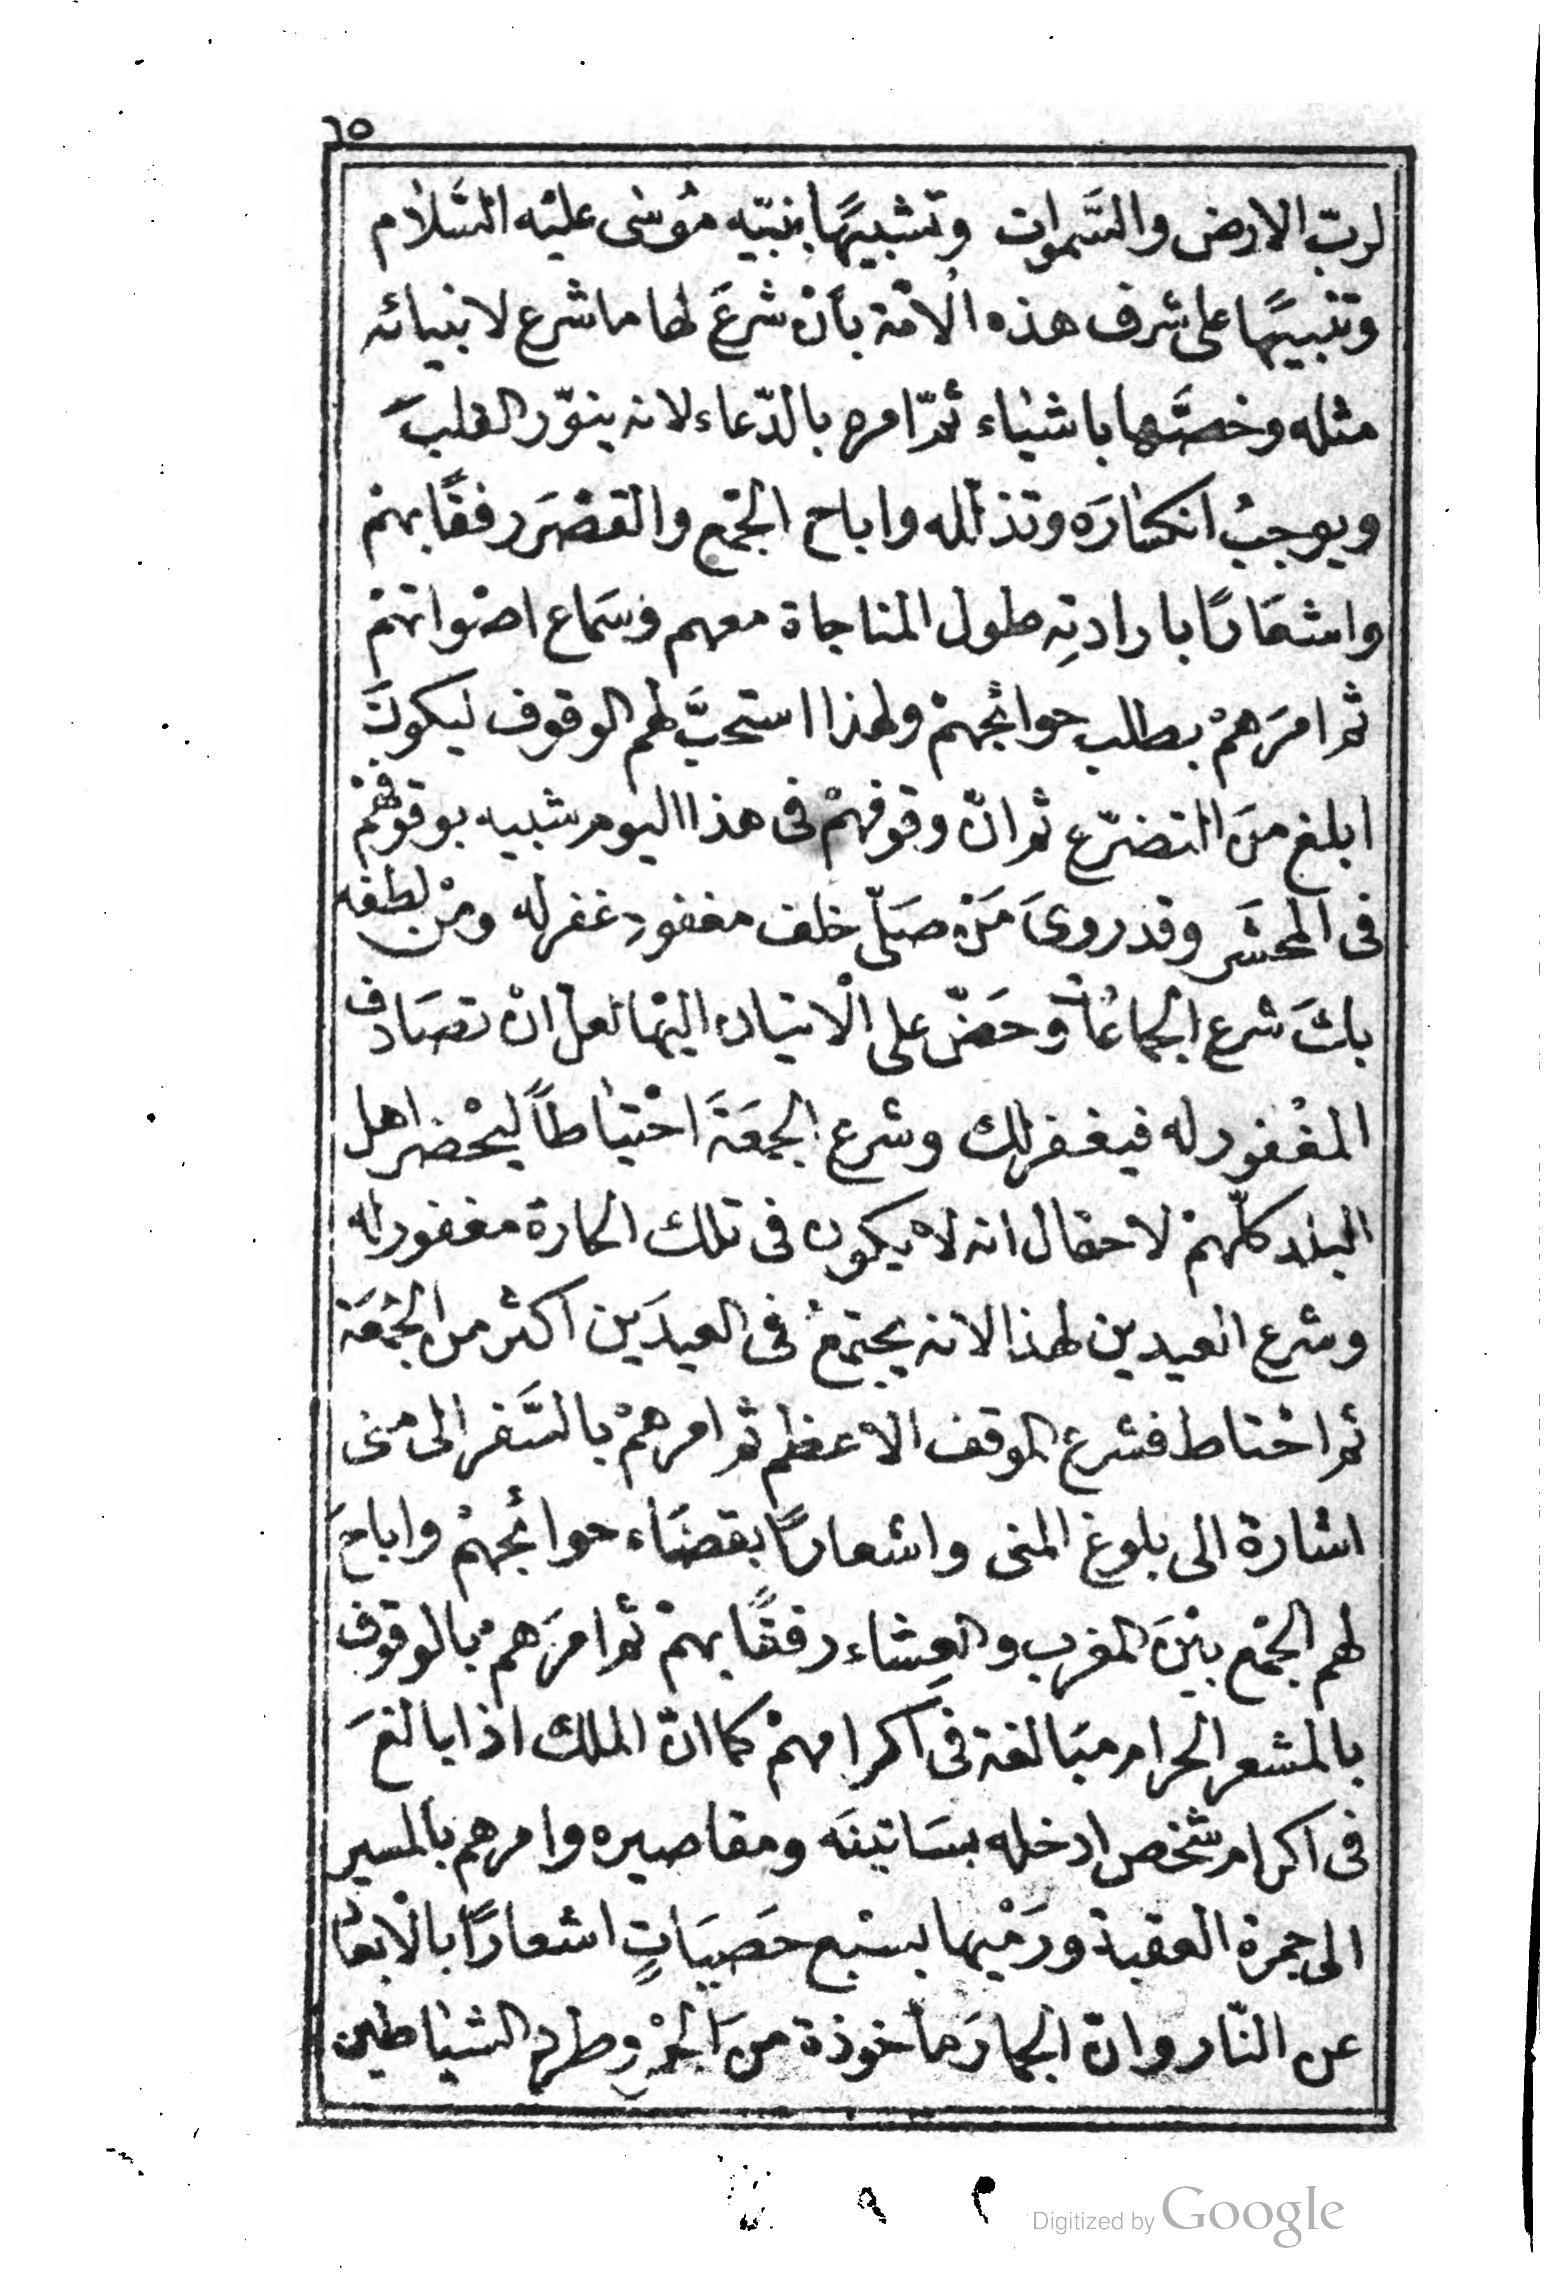 ٦٥
لربّ الارض والسَّموات وتشبيهًا بنبيّه مُوسٰى عليْه السَّلام
وتنبيهًا على شرف هذه الْامّة بأنْ شرعَ لها ما شرع لانبيائه
مثله وخصَّها باشيٰاء ثمّ امره بالدّعاء لانه ينوّر القلبَ
ويوجبُ انكسٰارَه وتذلّله واباح الجمْع والقصْرَ رفقًا بهمْ
واشعَارًا بارادتِه طول المناجاة معهم وسَماع اصْواتهمْ
ثم امرَهمْ بطلب حوائجهمْ ولهذا استحبَّ لهم الوقوف ليكونَ
ابلغ منَ التضرّع ثم انّ وقوفهمْ فى هذا اليوم شبيه بوقوفهمْ
فى المحْشَر وقد روىَ مَنْ صَلّى خلف مغفورٍ غفر له ومنْ لطفه
بكَ شرع الجماعات وحَضّ على الْاتيان اليْها لعلّ انْ تصَادف
المغْفور له فيغفر لك وشرع الجمعَة احْتيٰاطاً ليحْضر اهل
البلد كلّهمْ لاحتمال انه لا يكون فى تلك الحارة مغفور له
وشرع العيدين لهذا لانه يجتمعُ فى العيدَين اكثر من الجُمْعَة
ثم احْتاط فشرع الموقف الاعظم ثم امرهمْ بالسَّفر الى منى
اشارة الى بلوغ المنى واشعارًا بقضَاء حوائجهمْ واباحَ
لهم الجمْع بيْنَ المغرب والعِشاء رفقًا بهمْ ثم امرَهمْ بالوقوف
بالمشعر الحرام مبَالغة فى اكرامهمْ كما انّ الملك اذا بالغَ
فى اكرام شخص ادخله بسَاتينَه ومقاصيره وامرهم بالمسير
الى جمرة العقبة ورَمْيها بسبْع حَصيَاتٍ اشعارًا بالْابعاد
عن النّار وانّ الجمارَ مأخوذة منَ الجمْر وطرد الشيٰاطين
Digitized by Google